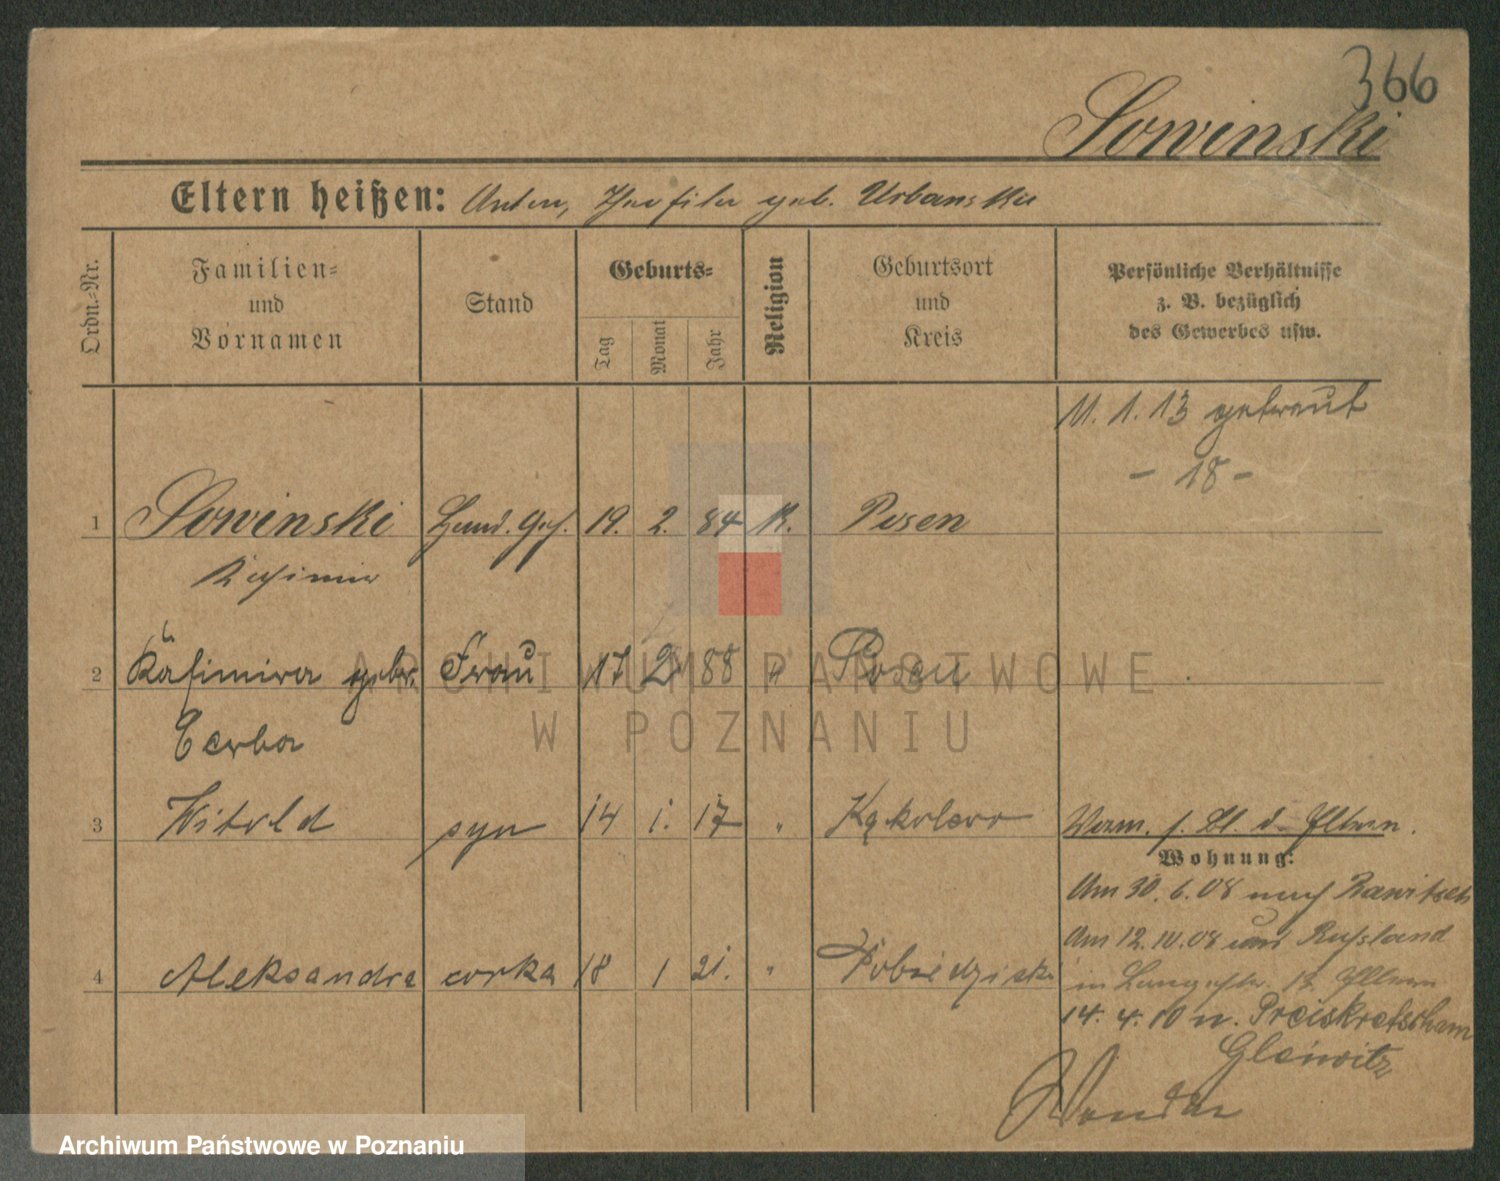 366
Sowinski
Eltern heißen: Anton, geb. Urbanska
Ordn.-Nr.
Familien-
und
Vornamen
Stand
Geburts-
Tag
Monat
Jahr
Religion
Geburtsort
und
Kreis
Persönliche Verhältnisse
z. B. bezüglich
des Gewerbes usw.
11. 1. 13 getraut
- 18 -
1 Sowinski Hand. Geh. 19. 2. 84 K. Posen
Kasimir
2 Kasimira gebr. Frau 17 2 88 " Posen
Cerba
3 Witold syn 14 1. 17 " Kąkolewo
4 Aleksandra corka 18 1 21. " Pobiedziska
Wohnung:
Am 30. 6. 08 nach Rawitsch
Am 12. 10. 08 aus Russland
14. 4. 10 n. Preiskretscham
Gleiwitz
ARCHIWUM PAŃSTWOWE
W POZNANIU
Archiwum Państwowe w Poznaniu